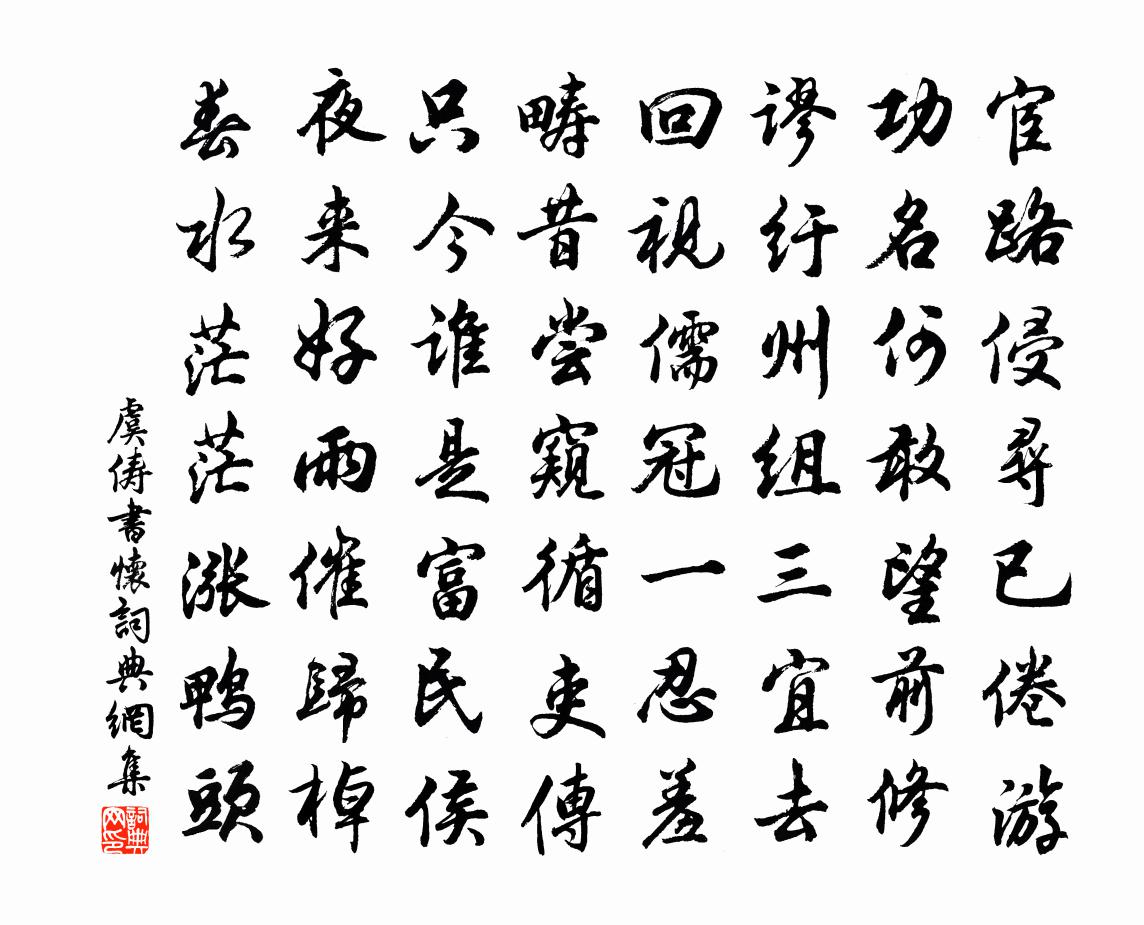 宦路侵尋已倦游
功名何敢望前修
谬纡州组三宜去
回視儒冠一忍羞
畴昔尝窺循吏傳
只今谁是富民侯
夜来好雨催歸棹
春水茫茫漲鸭頭
虞俦書懷詞典網集
詞典网印